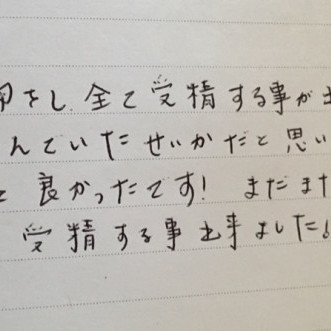 をし、全て受精する事が出
んでいたせいかだと思い
と良かったです! まだまた
受精する事出来ました!